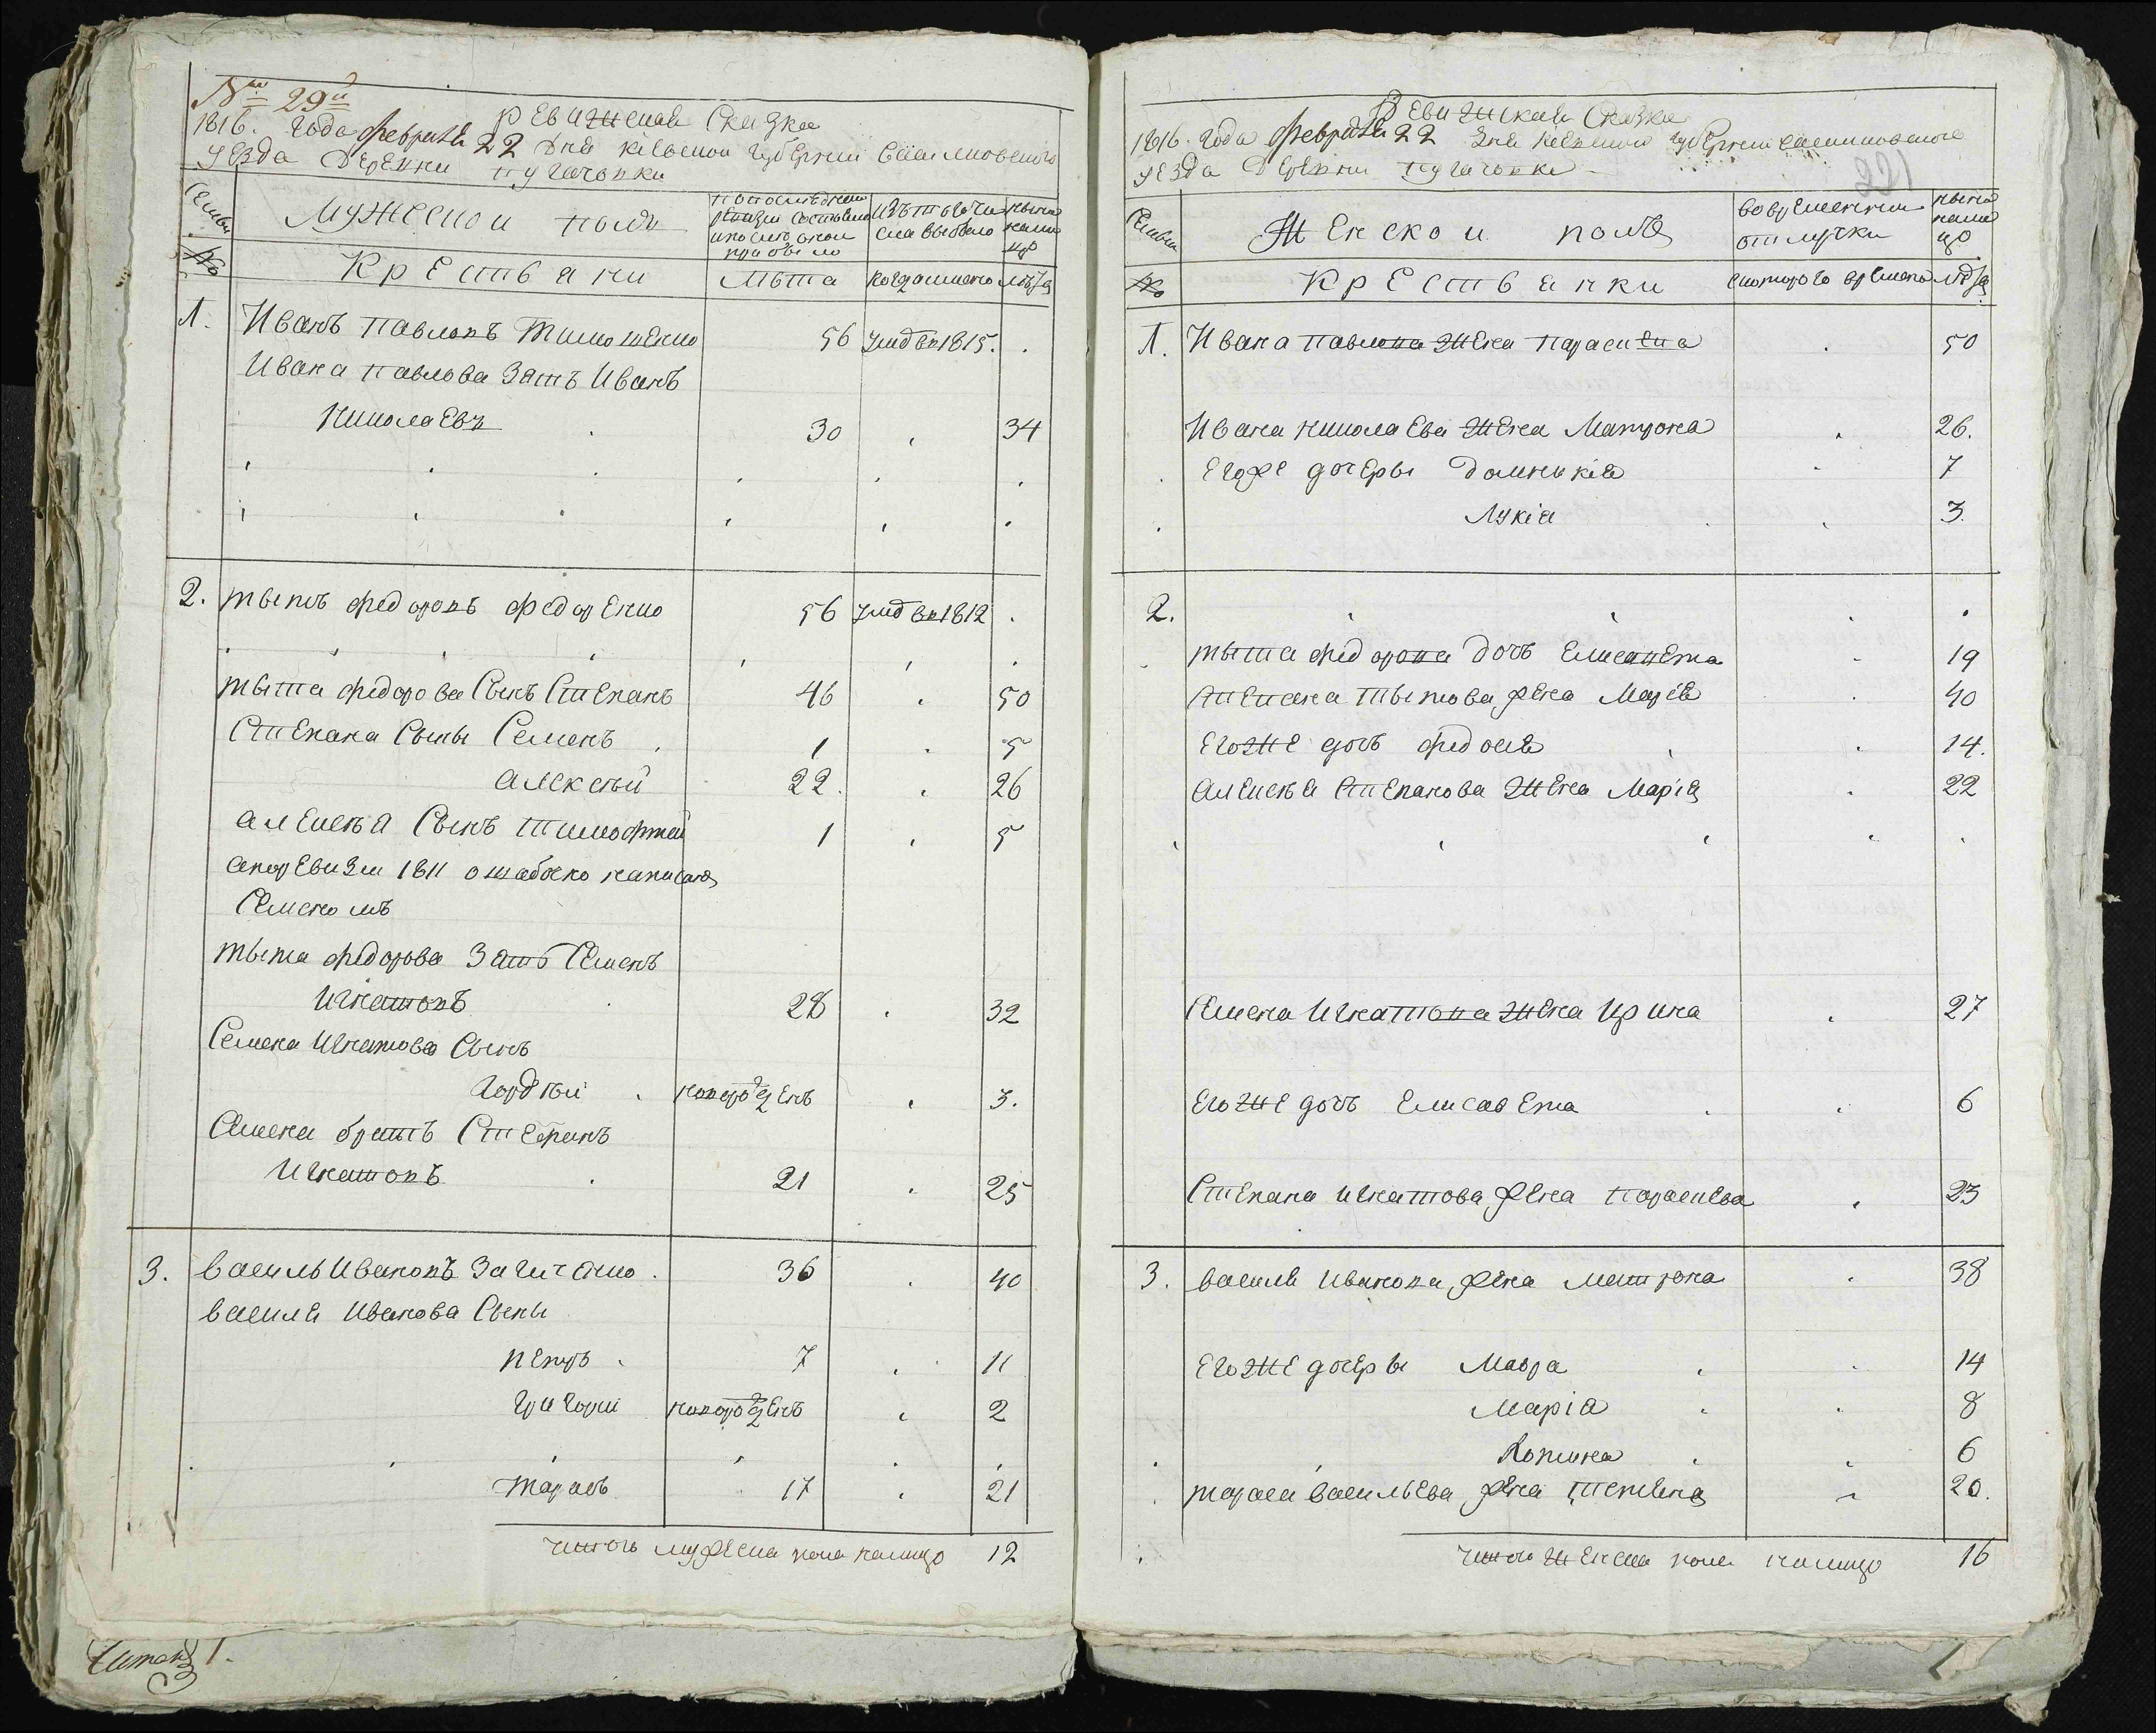 № 29й
Ревижская Сказка
1816. года февраля 22 дня кіевской губерніи
уезда Деревни пугачовки
Семьи
№
Мужескои полъ
По последнеи ревизіи состояло и после оной прибыло
изъ того числа выбыло
ныне на лицо
Крестьяни
Лѣта
когда именно
лѣта
1. Иванъ павловъ Тимошенко 56 умд въ 1815.
Ивана павлова Зять Иванъ
Николаевъ 30 34
2. тытъ федоровъ федоренко 56 умд въ 1812
тыта федорова Сынъ Степанъ 46 50
Степана Сыны Семенъ 1 5
алексѣй 22. 26
алексѣя Сынъ тимофтей 1 5
поревизіи 1811 ошабочно написанъ
Семеномъ
тыта федорова Зять Семенъ
игнатовъ 28 32
Семена игнатова Сынъ
гордѣй новорожденъ 3.
Семена братъ Степанъ
игнатовъ 21 25
3. василь Ивановъ 36 40
василя иванова Сыны
петръ 7 11
григорій новорожденъ 2
тарасъ 17 21
итого мужеска пола налицо 12
Читалъ
1.
Ревижская Сказка
1816. года февраля 22 дня кіевской губерніи
уезда Деревни пугачовки
122
Семьи
№
Женскои полъ
во временнои отлучки
ныне налицо
Крестьянки
с которого времени
лѣта
1. Ивана павлова жена параскева 50
Ивана николаева жена Матрона 26.
Егоже дочеры домникія 7
Лукія 3.
2.
тыта федорова дочь Елисавета 19
Степана тытова жена Марія 40
Егоже дочь федосія 14.
алексѣя степанова жена Марія 22
Семена игнатова жена ирина 27
Егоже дочь Елисавета 6
Степана игнатова жена параскева 23
3. василя иванова жена матрона 38
Егоже дочеры Мавра 14
Марія 8
6
тараса васильева жена 20.
итого женска пола налицо 16